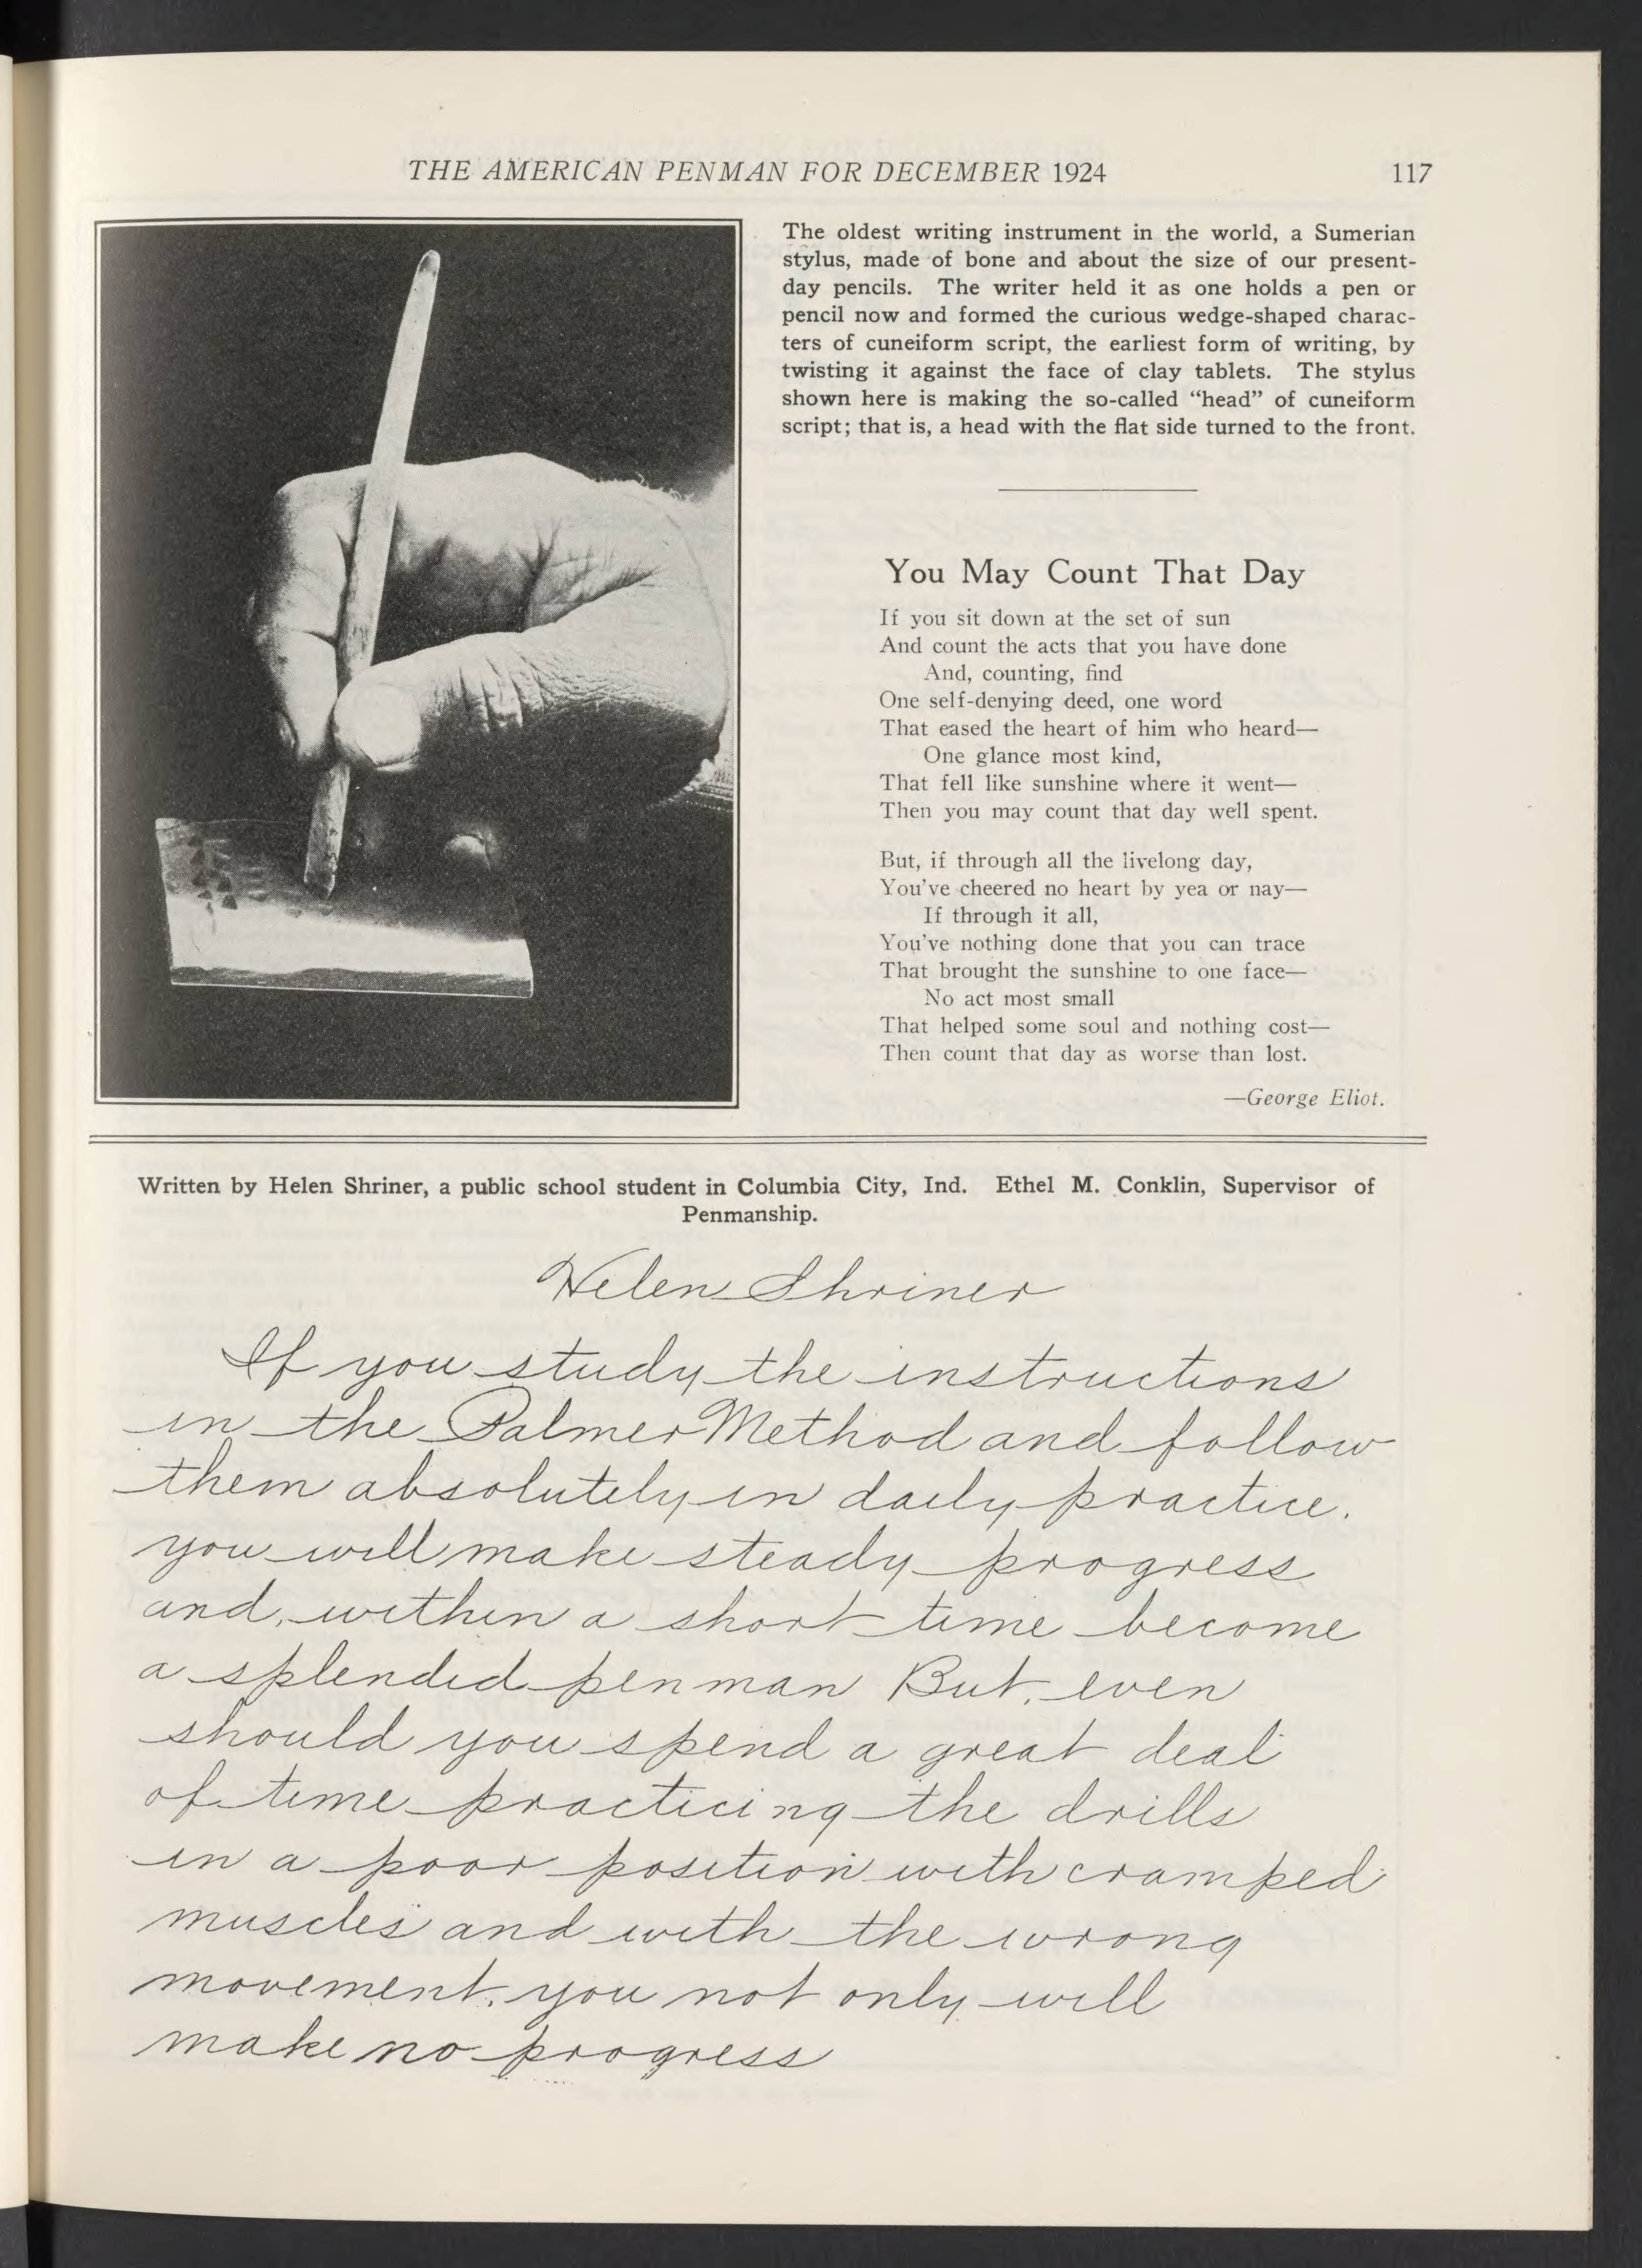 THE AMERICAN PENMAN FOR DECEMBER 1924 117
The oldest writing instrument in the world, a Sumerian
stylus, made of bone and about the size of our present-
day pencils. The writer held it as one holds a pen or
pencil now and formed the curious wedge-shaped charac-
ters of cuneiform script, the earliest form of writing, by
twisting it against the face of clay tablets. The stylus
shown here is making the so-called “head” of cuneiform
script; that is, a head with the flat side turned to the front.
You May Count That Day
If you sit down at the set of sun
And count the acts that you have done
And, counting, find
One self-denying deed, one word
That eased the heart of him who heard—
One glance most kind,
That fell like sunshine where it went—
Then you may count that day well spent.
But, if through all the livelong day,
You've cheered no heart by yea or nay—
If through it all,
You've nothing done that you can trace
That brought the sunshine to one face—
No act most small
That helped some soul and nothing cost—
Then count that day as worse than lost.
—George Eliot.
Written by Helen Shriner, a public school student in Columbia City, Ind. Ethel M. Conklin, Supervisor of
Penmanship.
Helen Shriner
If you study the instructions
in the Palmer Method and follow
them absolutely in daily practice.
you will make steady progress
and, within a short time become
a splendid penman But, even
should you spend a great deal
of time practicing the drills
in a poor position with cramped
muscles and with the wrong
movement, you not only will
make no progress